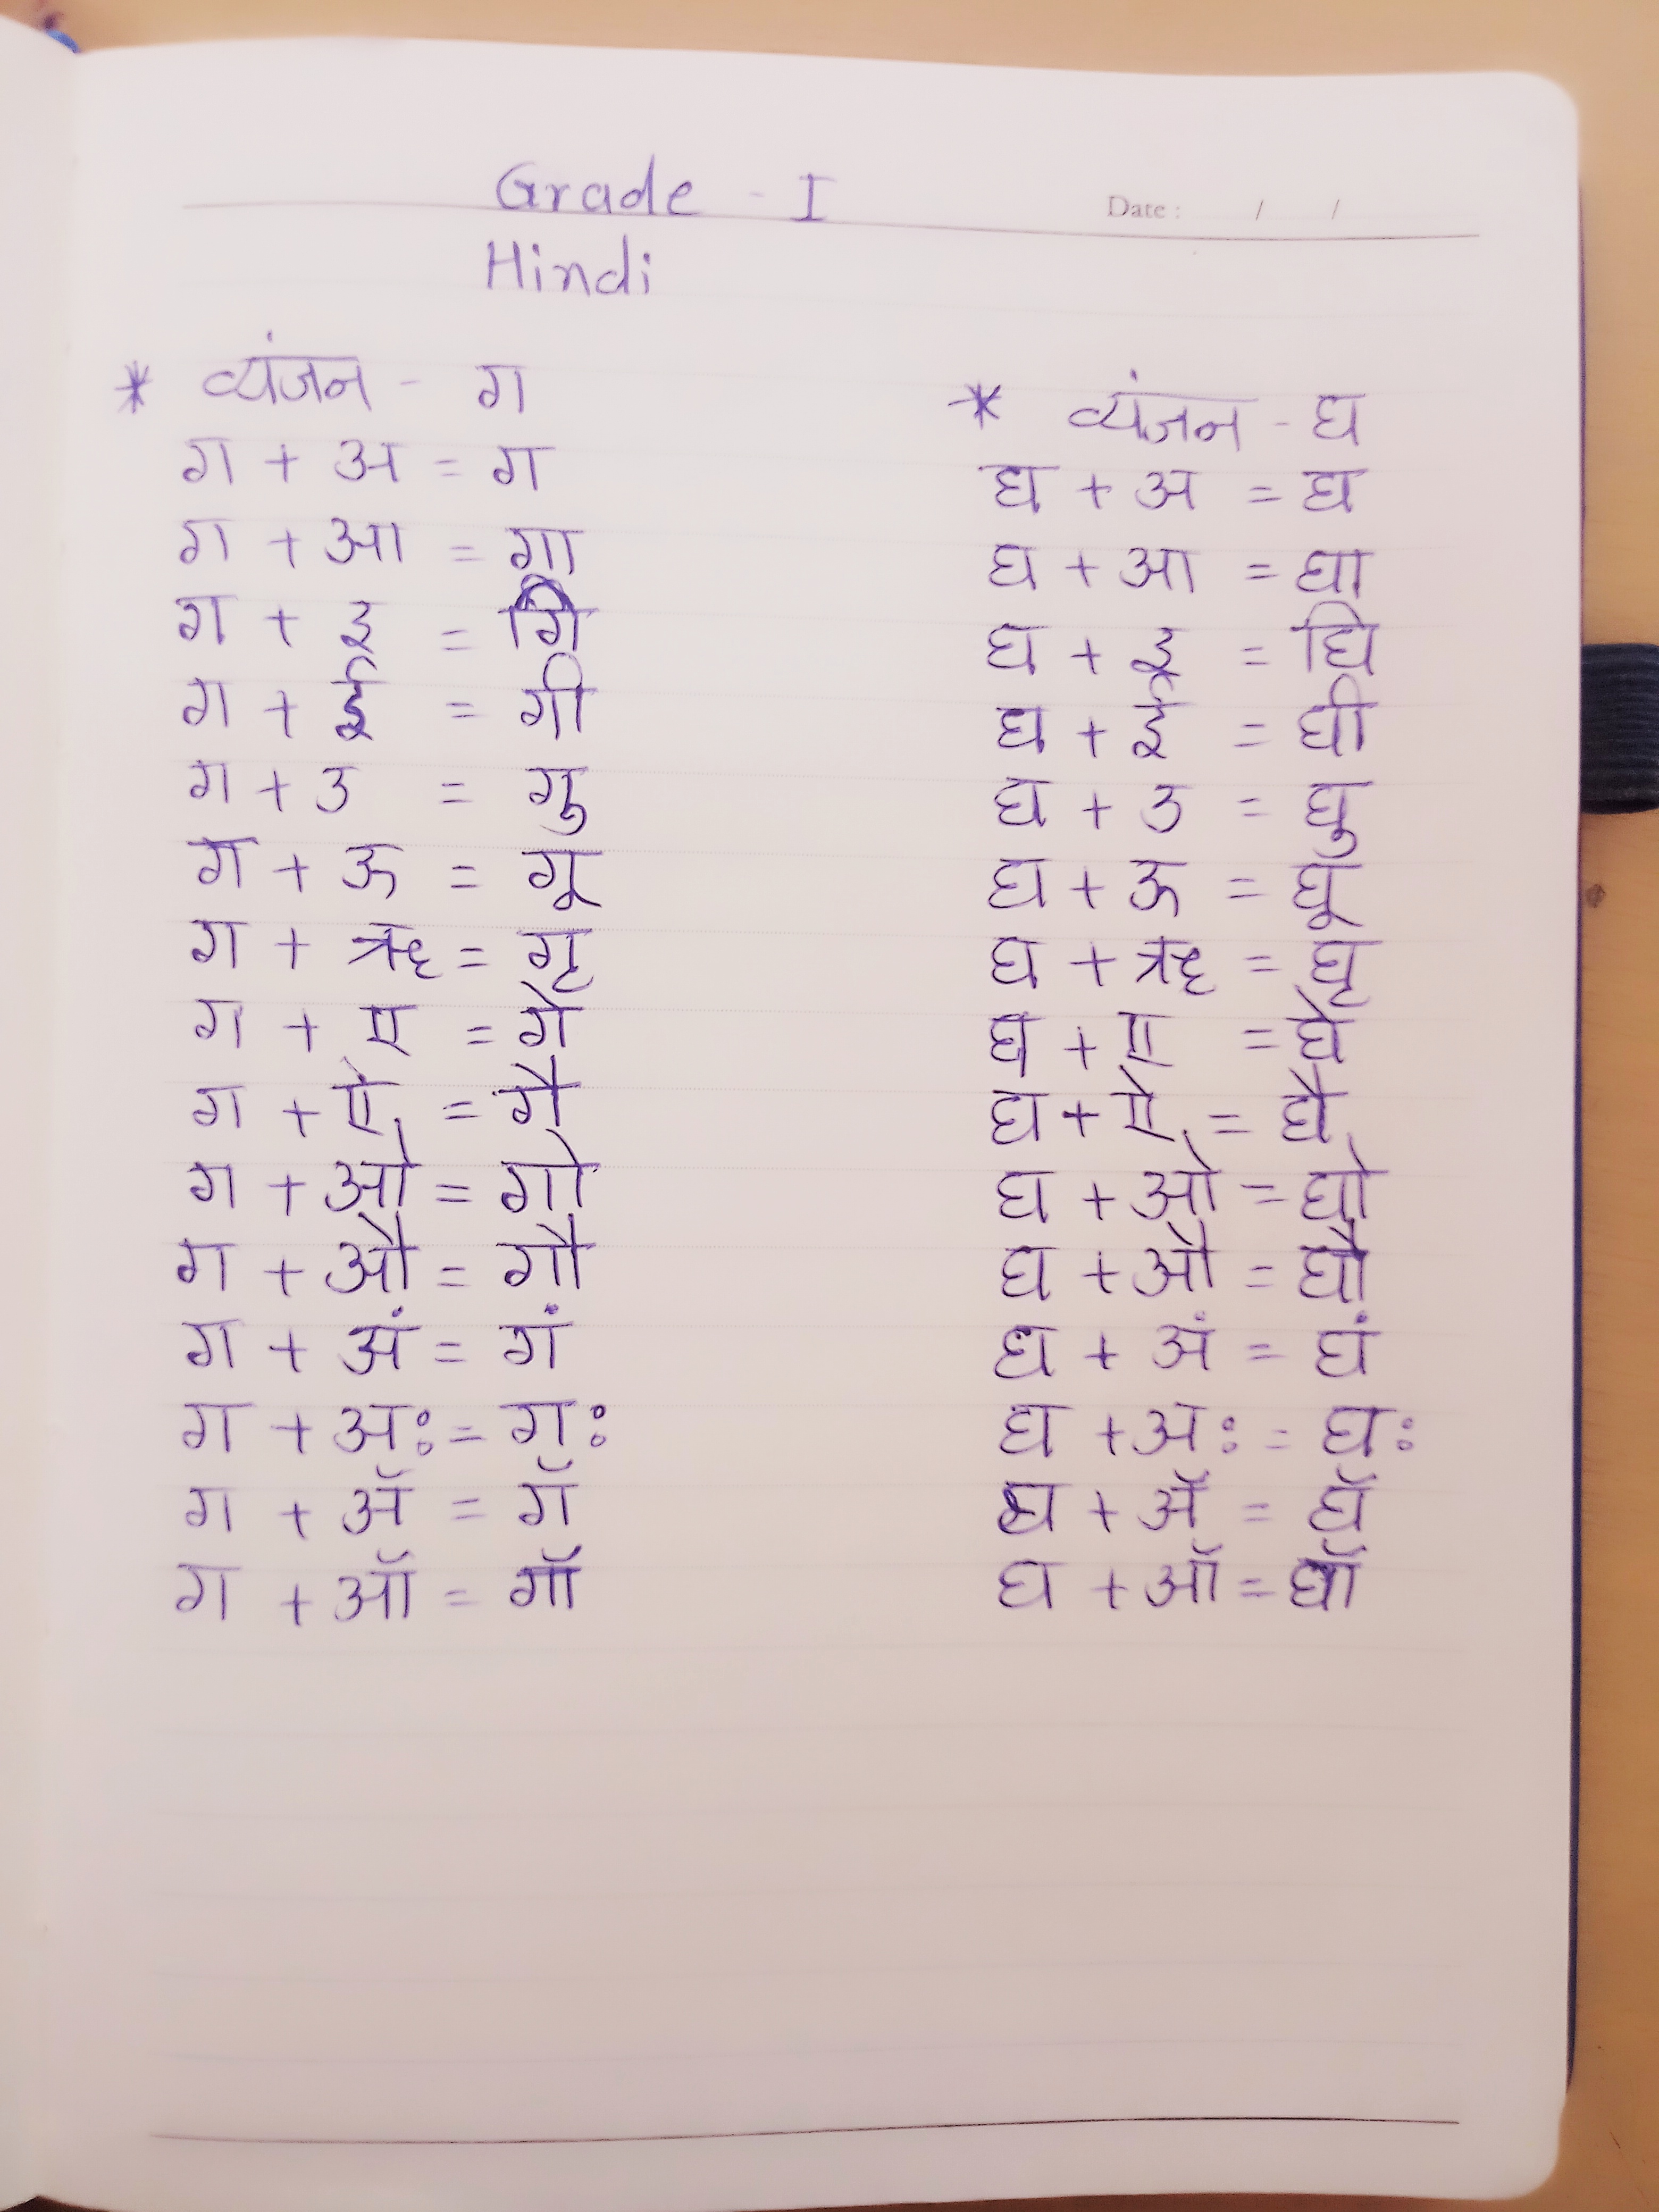 Grade - I
Date : / /
Hindi
* व्यंजन - ग
ग + अ = ग
ग + आ = गा
ग + इ = गि
ग + ई = गी
ग + उ = गु
ग + ऊ = गू
ग + ऋ = गृ
ग + ए = गे
ग + ऐ = गै
ग + ओ = गो
ग + औ = गौ
ग + अं = गं
ग + अः = गः
ग + ॲ = गॅ
ग + ऑ = गॉ
* व्यंजन - घ
घ + अ = घ
घ + आ = घा
घ + इ = घि
घ + ई = घी
घ + उ = घु
घ + ऊ = घू
घ + ऋ = घृ
घ + ए = घे
घ + ऐ = घै
घ + ओ = घो
घ + औ = घौ
घ + अं = घं
घ + अः = घः
घ + ॲ = घॅ
घ + ऑ = घॉ